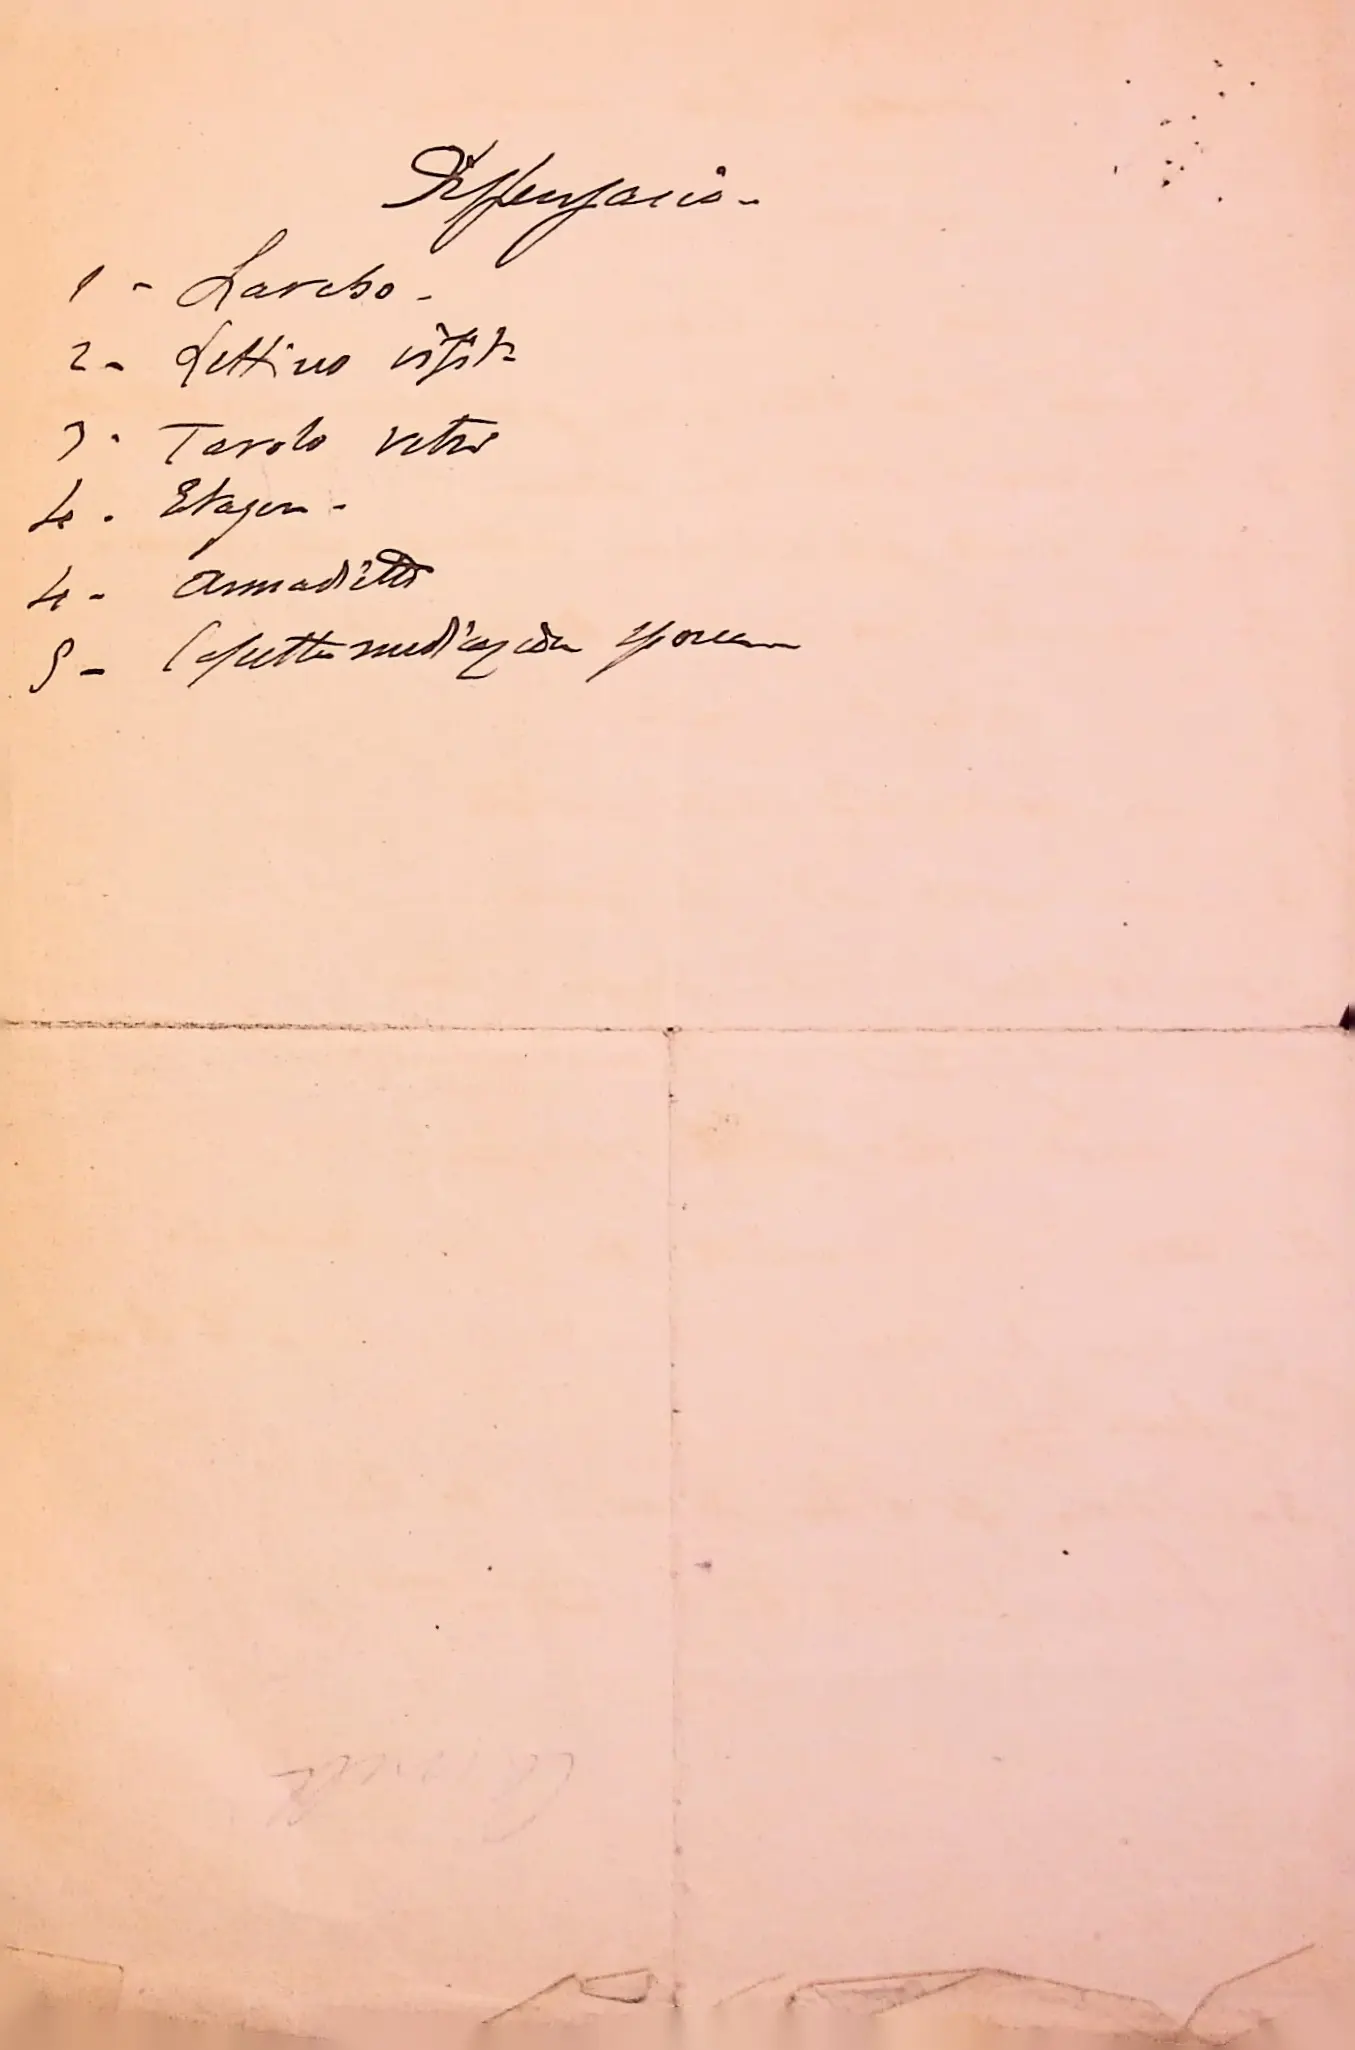 Dispensario -
1 - Lavabo -
2 - Lettino visita
3 - Tavolo vetro
4 - Etager -
4 - Armadietto
5 - Cassetta medicazione